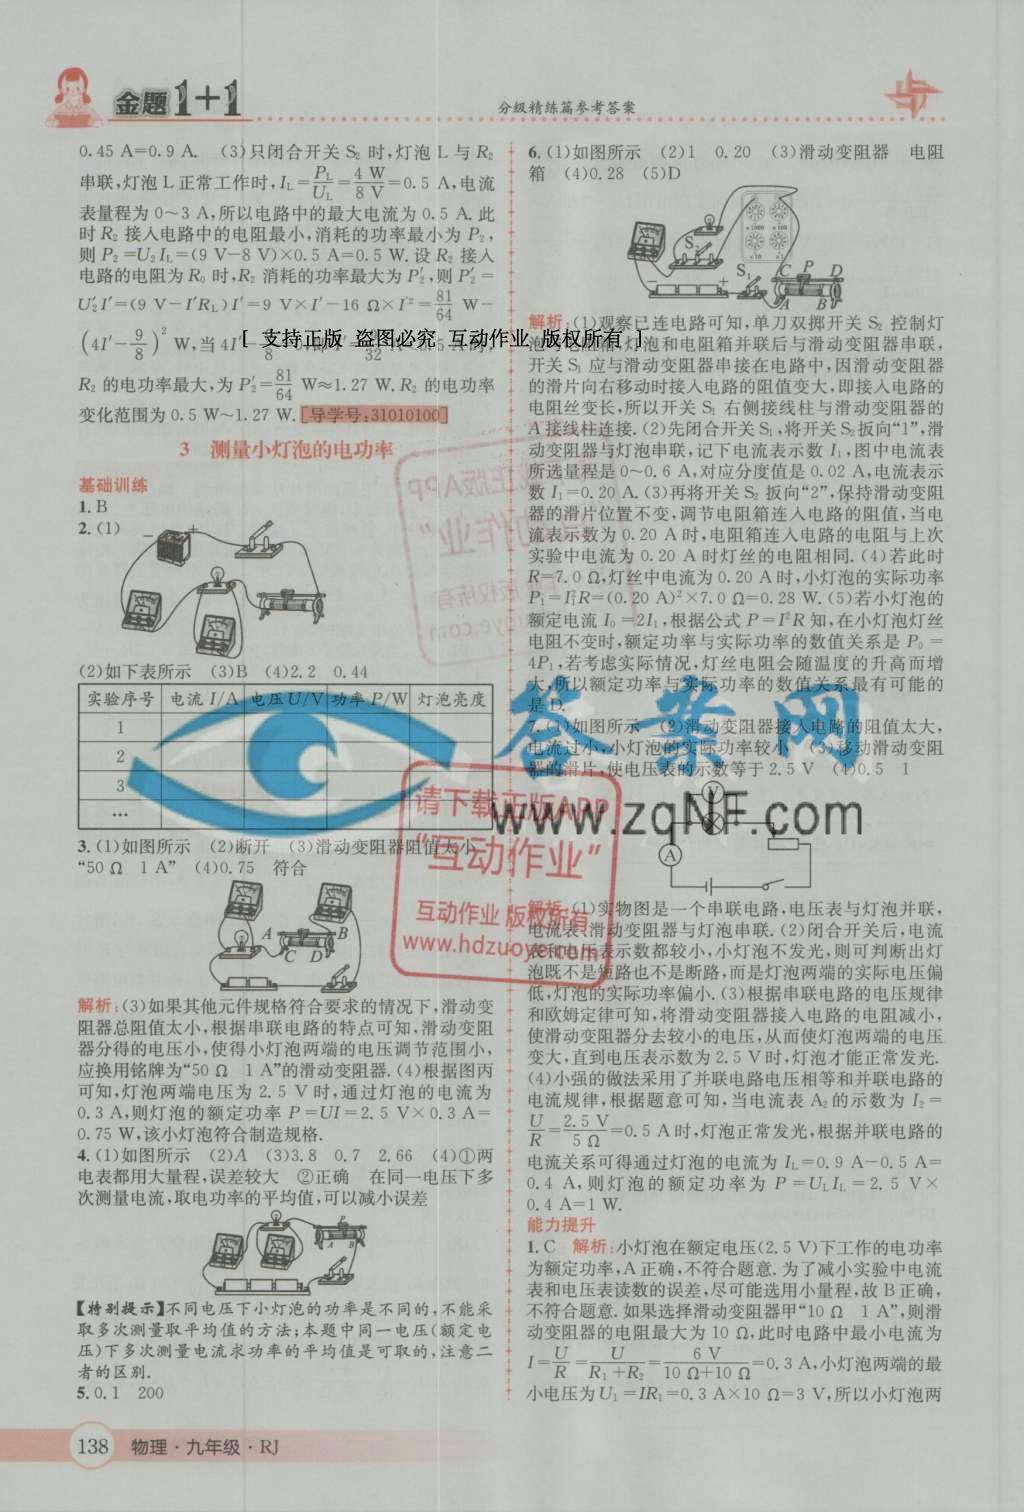 金题1+1
分级精练篇参考答案
0.45 A=0.9 A. (3)只闭合开关 S₂ 时,灯泡 L 与 R₂
串联,灯泡 L 正常工作时,I_L=P_L/U_L=4 W/8 V=0.5 A,电流
表量程为 0～3 A,所以电路中的最大电流为 0.5 A. 此
时 R₂ 接入电路中的电阻最小,消耗的功率最小为 P₂,
则 P₂=U₂I_L=(9 V-8 V)×0.5 A=0.5 W. 设 R₂ 接入
电路的电阻为 R₀ 时,R₂ 消耗的功率最大为 P₂′,则 P₂′=
U₂′I′=(9 V-I′R_L)I′=9 V×I′-16 Ω×I′²=81/64 W-
(4I′-9/8)² W,当 4I′
R₂ 的电功率最大,为 P₂′=81/64 W≈1.27 W. R₂ 的电功率
变化范围为 0.5 W～1.27 W. [导学号:31010100]
3 测量小灯泡的电功率
基础训练
1. B
2. (1)
(2)如下表所示 (3)B (4)2.2 0.44
实验序号 电流 I/A 电压 U/V 功率 P/W 灯泡亮度
1
2
3
…
3. (1)如图所示 (2)断开 (3)滑动变阻器阻值太小
“50 Ω 1 A” (4)0.75 符合
A B C D
解析:(3)如果其他元件规格符合要求的情况下,滑动变
阻器总阻值太小,根据串联电路的特点可知,滑动变阻
器分得的电压小,使得小灯泡两端的电压调节范围小,
应换用铭牌为“50 Ω 1 A”的滑动变阻器. (4)根据图丙
可知,灯泡两端电压为 2.5 V 时,通过灯泡的电流为
0.3 A,则灯泡的额定功率 P=UI=2.5 V×0.3 A=
0.75 W,该小灯泡符合制造规格.
4. (1)如图所示 (2)A (3)3.8 0.7 2.66 (4)①两
电表都用大量程,误差较大 ②正确 在同一电压下多
次测量电流,取电功率的平均值,可以减小误差
P A B
【特别提示】不同电压下小灯泡的功率是不同的,不能采
取多次测量取平均值的方法;本题中同一电压(额定电
压)下多次测量电流求功率的平均值是可取的,注意二
者的区别.
5. 0.1 200
6. (1)如图所示 (2)1 0.20 (3)滑动变阻器 电阻
箱 (4)0.28 (5)D
S₂ S₁ ×1000 ×100 ×10 ×1 C P D A B
解析:(1)观察已连电路可知,单刀双掷开关 S₂ 控制灯
泡与电阻箱,灯泡和电阻箱并联后与滑动变阻器串联,
开关 S₁ 应与滑动变阻器串接在电路中,因滑动变阻器
的滑片向右移动时接入电路的阻值变大,即接入电路的
电阻丝变长,所以开关 S₁ 右侧接线柱与滑动变阻器的
A 接线柱连接. (2)先闭合开关 S₁,将开关 S₂扳向“1”,滑
动变阻器与灯泡串联,记下电流表示数 I₁,图中电流表
所选量程是 0～0.6 A,对应分度值是 0.02 A,电流表示
数 I₁=0.20 A. (3)再将开关 S₂ 扳向“2”,保持滑动变阻
器的滑片位置不变,调节电阻箱连入电路的阻值,当电
流表示数为 0.20 A 时,电阻箱连入电路的电阻与上次
实验中电流为 0.20 A 时灯丝的电阻相同. (4)若此时
R=7.0 Ω,灯丝中电流为 0.20 A 时,小灯泡的实际功率
P₁=I₁²R=(0.20 A)²×7.0 Ω=0.28 W. (5)若小灯泡的
额定电流 I₀=2I₁,根据公式 P=I²R 知,在小灯泡灯丝
电阻不变时,额定功率与实际功率的数值关系是 P₀=
4P₁,若考虑实际情况,灯丝电阻会随温度的升高而增
大,所以额定功率与实际功率的数值关系最有可能的
是 D.
7. (1)如图所示 (2)滑动变阻器接入电路的阻值太大,
电流过小,小灯泡的实际功率较小 (3)移动滑动变阻
器的滑片,使电压表的示数等于 2.5 V (4)0.5 1
V A
解析:(1)实物图是一个串联电路,电压表与灯泡并联,
电流表、滑动变阻器与灯泡串联. (2)闭合开关后,电流
表和电压表示数都较小,小灯泡不发光,则可判断出灯
泡既不是短路也不是断路,而是灯泡两端的实际电压偏
低,灯泡的实际功率偏小. (3)根据串联电路的电压规律
和欧姆定律可知,将滑动变阻器接入电路的电阻减小,
使滑动变阻器分去较小的电压,从而使灯泡两端的电压
变大,直到电压表示数为 2.5 V 时,灯泡才能正常发光.
(4)小强的做法采用了并联电路电压相等和并联电路的
电流规律,根据题意可知,当电流表 A₂ 的示数为 I₂=
U/R=2.5 V/5 Ω=0.5 A 时,灯泡正常发光,根据并联电路的
电流关系可得通过灯泡的电流为 I_L=0.9 A-0.5 A=
0.4 A,则灯泡的额定功率为 P=U_L I_L=2.5 V×
0.4 A=1 W.
能力提升
1. C 解析:小灯泡在额定电压(2.5 V)下工作的电功率
为额定功率,A 正确,不符合题意. 为了减小实验中电流
表和电压表读数的误差,尽可能选用小量程,故 B 正确,
不符合题意. 如果选择滑动变阻器甲“10 Ω 1 A”,则滑
动变阻器的电阻最大为 10 Ω,此时电路中最小电流为
I=U/R=U/(R₁+R₂)=6 V/(10 Ω+10 Ω)=0.3 A,小灯泡两端的最
小电压为 U₁=IR₁=0.3 A×10 Ω=3 V,所以小灯泡两
138 物理·九年级·RJ
[ 支持正版 盗图必究 互动作业 版权所有 ]
答案网
www.zqNF.com
请下载正版APP
“互动作业”
互动作业 版权所有
www.hdzuoye.com